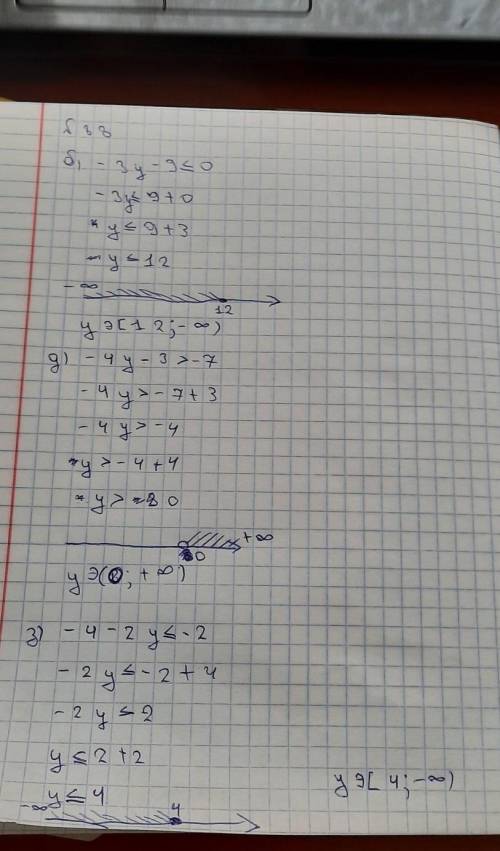 б) - 3y - 9 ≤ 0
- 3y ≤ 9 + 0
y ≤ 9 + 3
- y ≤ 12
- ∞
12
y Э [12; - ∞)
д) - 4y - 3 > - 7
- 4y > - 7 + 3
- 4y > - 4
y > - 4 + 4
y > 0
+ ∞
0
y Э (0; + ∞)
з) - 4 - 2y ≤ - 2
- 2y ≤ - 2 + 4
- 2y ≤ 2
y ≤ 2 + 2
y ≤ 4
y Э [4; - ∞)
- ∞
4